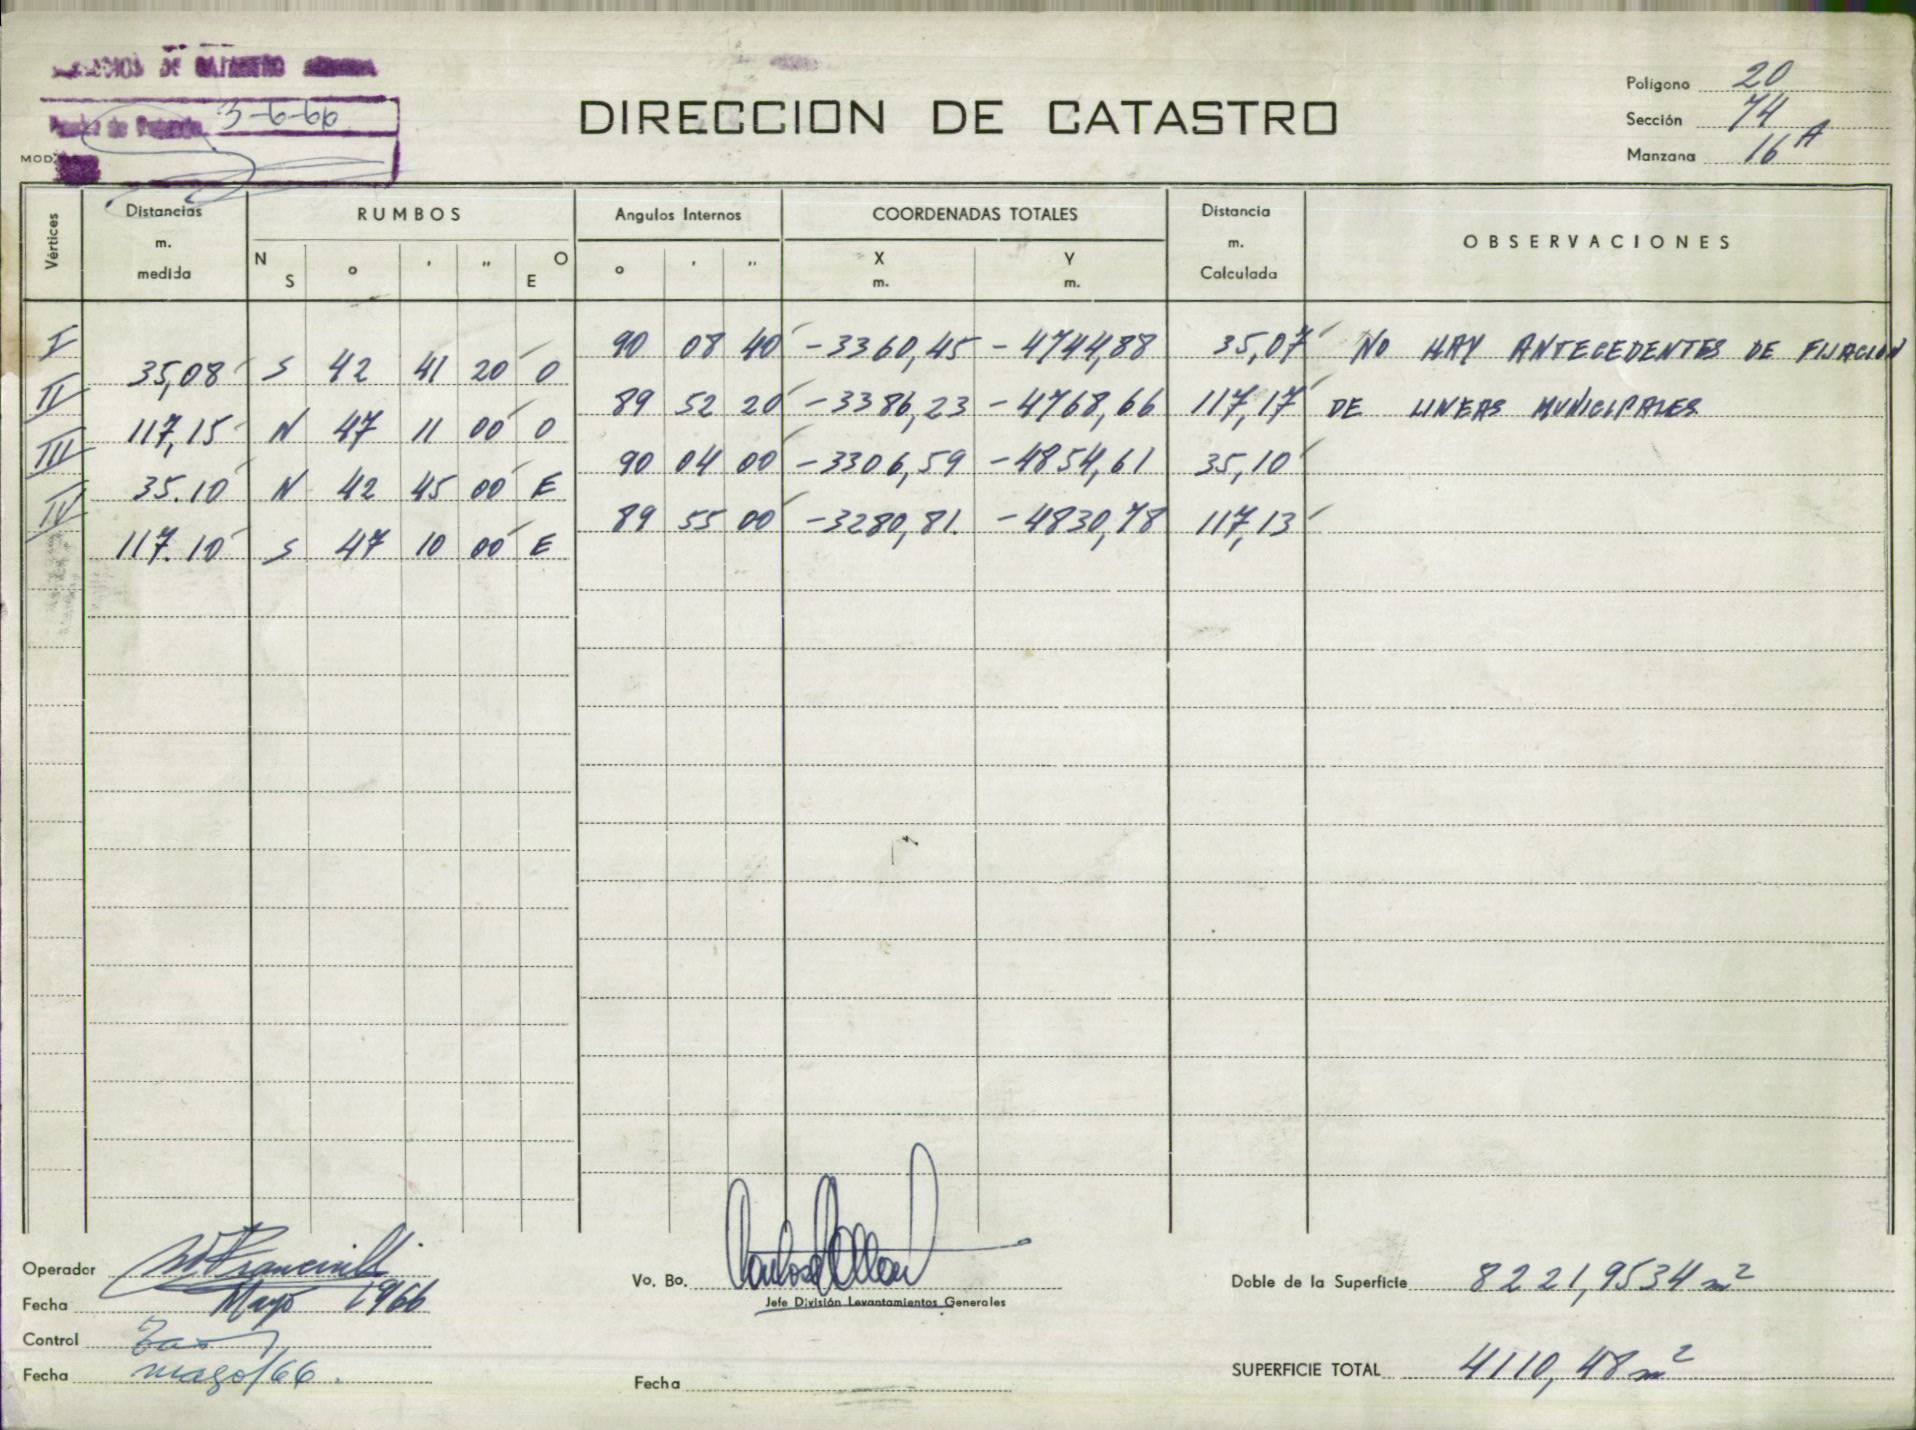 DE CATASTRO
3-6-66
MOD.
DIRECCION DE CATASTRO
Polígono 20
Sección 74
Manzana 16 A
Vértices
Distancias m. medida
RUMBOS
N S ° ' " O E
Angulos Internos
° ' "
COORDENADAS TOTALES
X m. Y m.
Distancia m. Calculada
OBSERVACIONES
I 90 08 40 -3360,45 -4744,88 35,07 NO HAY ANTECEDENTES DE FIJACION
35,08 S 42 41 20 O
II 89 52 20 -3386,23 -4768,66 117,17 DE LINEAS MUNICIPALES
117,15 N 47 11 00 O
III 90 04 00 -3306,59 -4854,61 35,10
35.10 N 42 45 00 E
IV 89 55 00 -3280,81. -4830,78 117,13
117.10 S 47 10 00 E
Operador
Fecha Mayo 1966
Control
Fecha mayo/66.
Vo. Bo.
Jefe División Levantamientos Generales
Fecha
Doble de la Superficie 8221,9534 m²
SUPERFICIE TOTAL 4110,48 m²